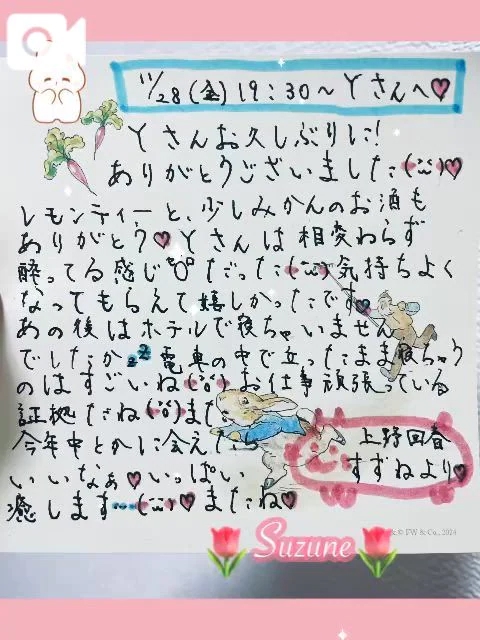 11/28(金)19:30~Yさんへ♡
Yさんお久しぶりに!
ありがとうございました(¨̮)♡
レモンティーと、少しみかんのお酒も
ありがとう♡Yさんは相変わらず
酔ってる感じ°0°だった(¨̮)気持ちよく
なってもらえて嬉しかったです♡
あの後はホテルで寝ちゃいません
でしたか💤電車の中で立ったまま寝ちゃう
のはすごいね(°o°)お仕事頑張っている
証拠だね(°o°)また
今年中とかに会えた
いいなぁ♡いっぱい
癒します…(¨̮)♡またね♡
上野回春
すずねより♡
& © FW & Co., 2024
Suzune